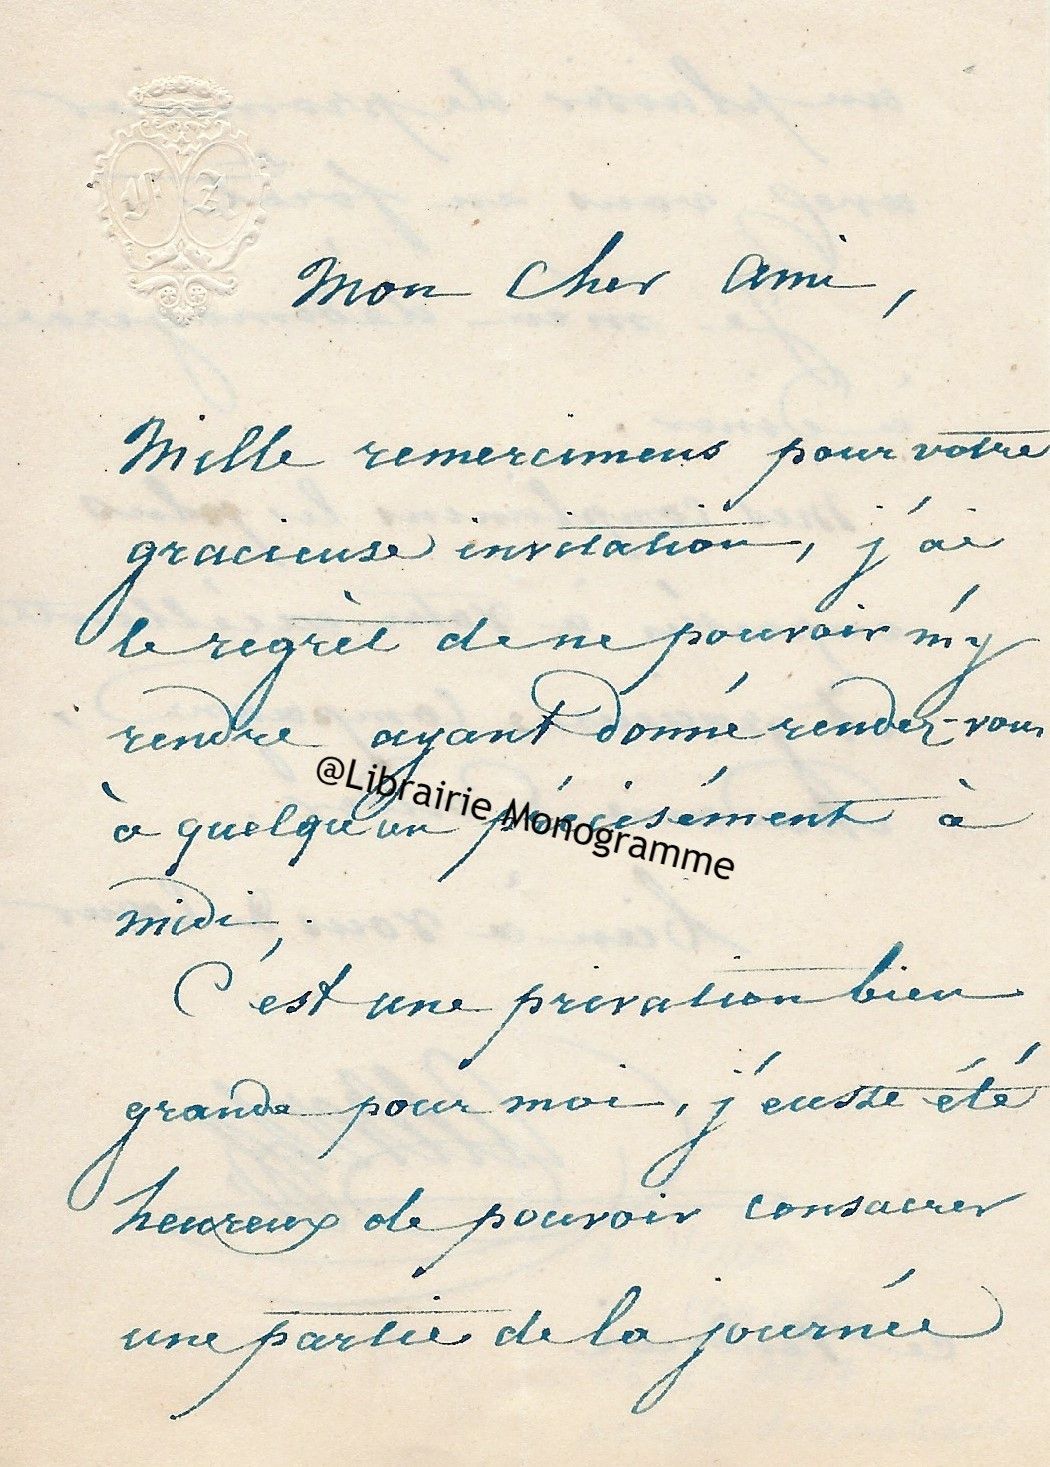 Mon Cher Ami,
Mille remercimens pour votre
gracieuse invitation, j'ai
le regrèt de ne pouvoir m'y
rendre ayant donné rendez-vous
à quelqu'un précisément à
@Librairie Monogramme
midi,
C'est une privation bien
grande pour moi, j'eusse été
heureux de pouvoir consacrer
une partie de la journée